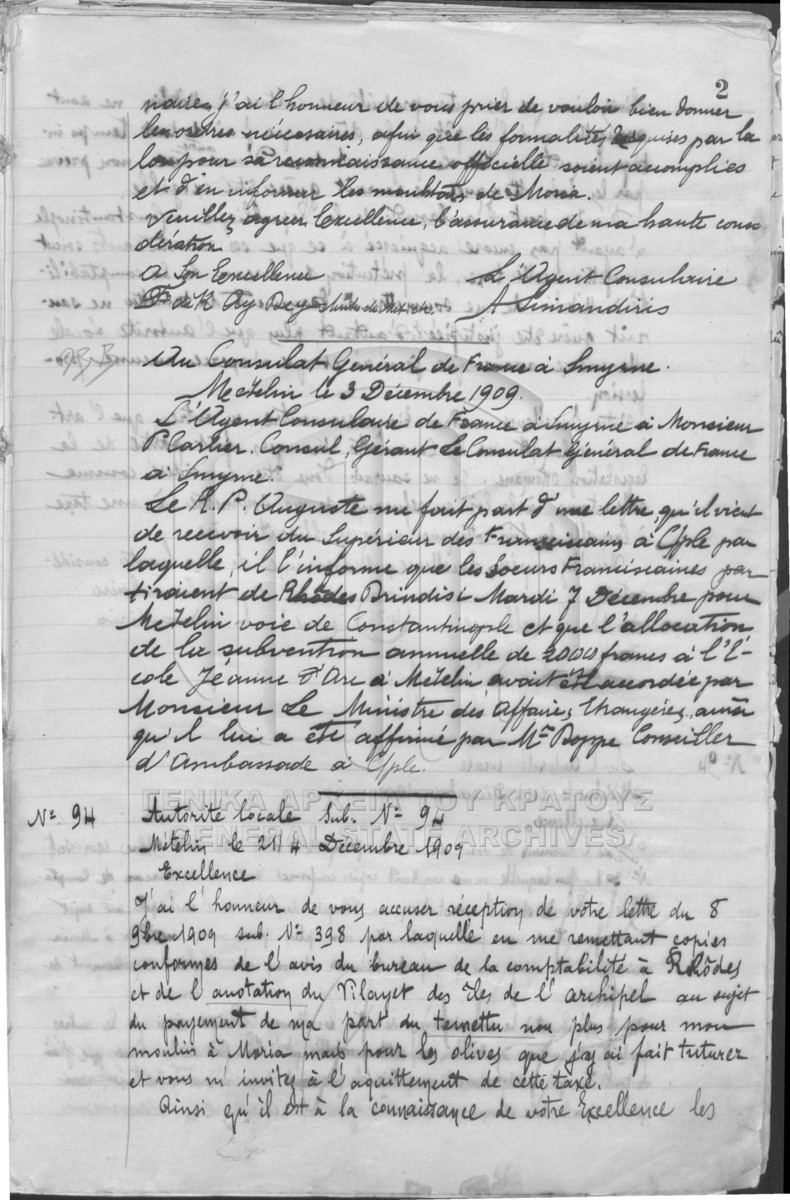 2
naire, j'ai l'honneur de vous prier de vouloir bien donner
les ordres nécessaires, afin que les formalités requises par la
loi pour sa reconnaissance officielle soient accomplies
et d'en informer les de Moria.
Veuillez agréer Excellence, l'assurance de ma haute consi
dération
A Son Excellence L'Agent Consulaire
Bey
Au Consulat Général de France à Smyrne.
Metelin le 3 Décembre 1909.
L'Agent Consulaire de France à Smyrne à Monsieur
P Carlier. Consul, Gérant Le Consulat Général de France
à Smyrne.
Le R. P. Auguste me fait part d'une lettre, qu'il vient
de recevoir du Supérieur des Franciscains à C/ple par
laquelle, il l'informe que les Soeurs Franciscaines par
tiraient de Rhôdes Brindisi Mardi 7 Décembre pour
Metelin voie de Constantinople et que l'allocation
de la subvention annuelle de 2000 francs à l'E-
cole Jéanne d'Arc à Metelin avait été accordée par
Monsieur Le Ministre des Affaires Etrangères, ainsi
qu'il lui a été affirmé par Mr Boppe Conseiller
d'Ambassade à C/ple.
ΓΕΝΙΚΑ ΑΡΧΕΙΑ ΤΟΥ ΚΡΑΤΟΥΣ
GENERAL STATE ARCHIVES
No 94 Autorité locale Sub. No 94
Métélin le 21/4 Décembre 1909
Excellence
J'ai l'honneur de vous accuser réception de votre lettre du 8
9bre 1909 sub. No 398 par laquelle en me remettant copies
conformes de l'avis du bureau de la comptabilité à Rhôdes
et de l'anotation du Vilayet des îles de l'archipel au sujet
du payement de ma part du temettu non plus pour mon
moulin à Moria mais pour les olives que j'y ai fait triturer
et vous m'invitez à l'aquittement de cette taxe.
Ainsi qu'il est à la connaissance de votre Excellence les